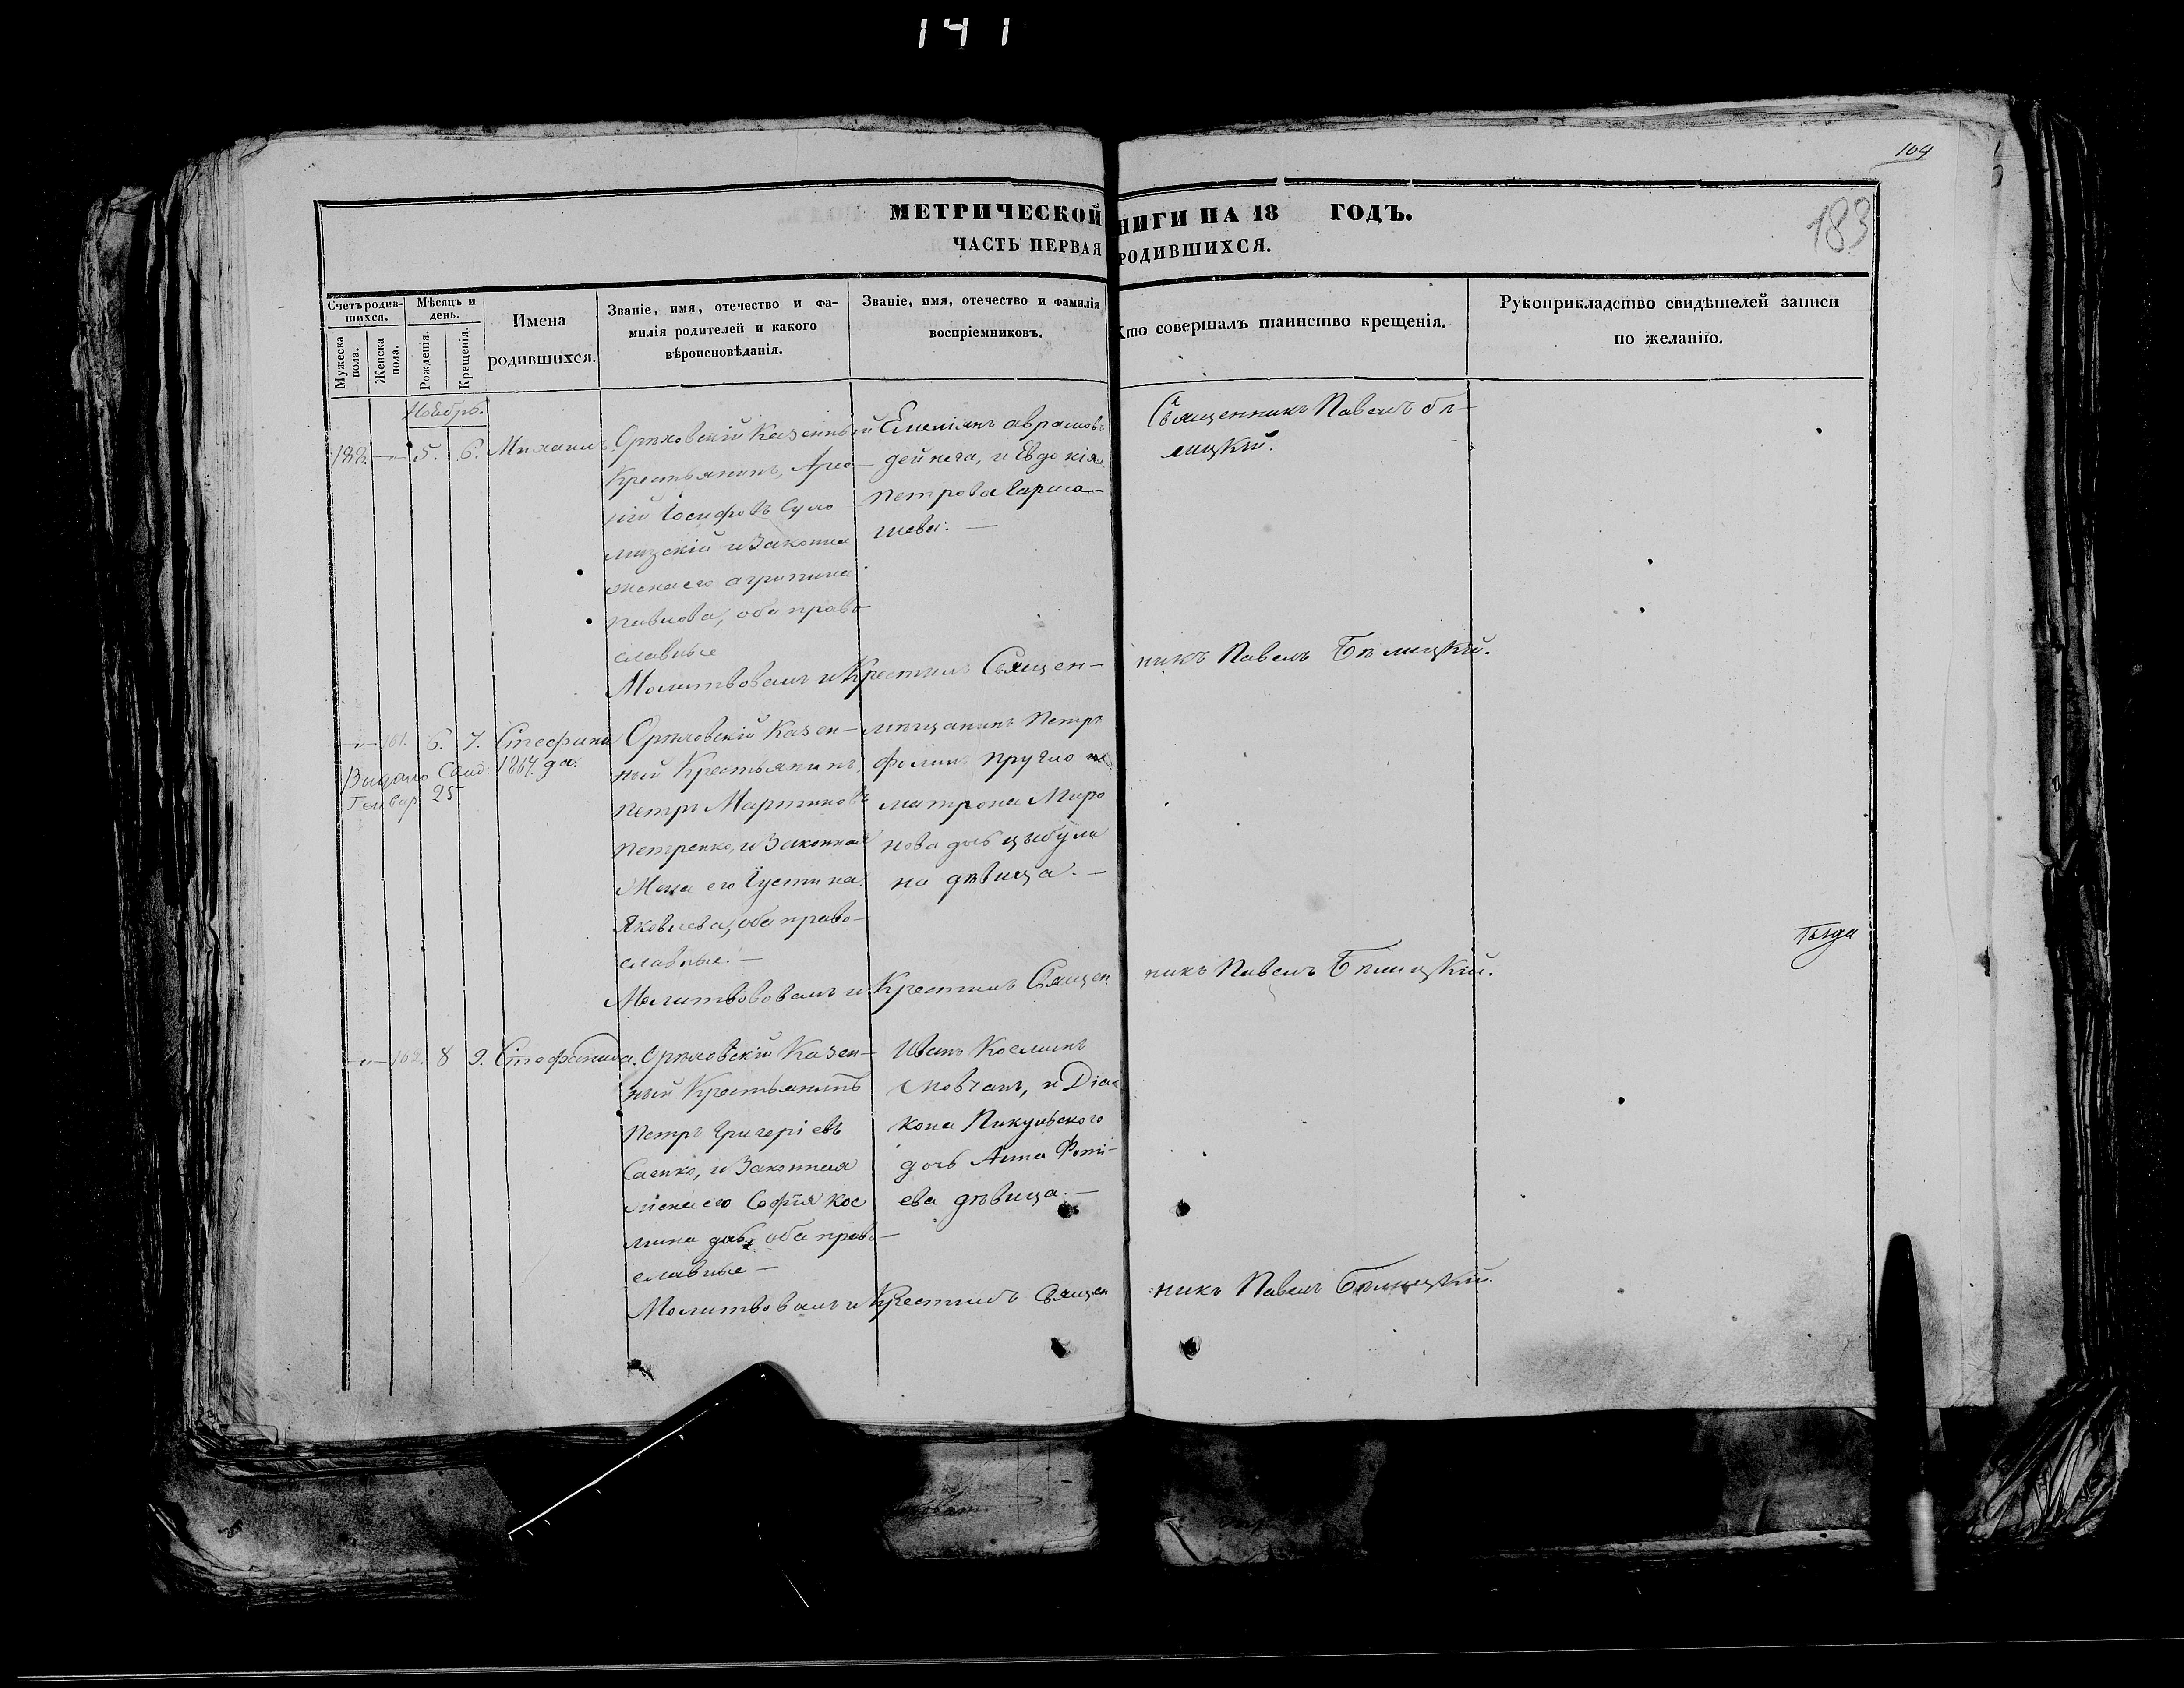 141
104
183
МЕТРИЧЕСКОЙ НИГИ НА 18 ГОДЪ.
ЧАСТЬ ПЕРВАЯ РОДИВШИХСЯ.
Счетъ родив-
шихся.
Мужеска пола.
Женска пола.
Мѣсяцъ и
день.
Рожденія.
Крещенія.
Имена
родившихся.
Званіе, имя, отечество и фа-
милія родителей и какого
вѣроисповѣданія.
Званіе, имя, отечество и фамилія
воспріемниковъ.
Кто совершалъ таинство крещенія.
Рукоприкладство свидѣтелей записи
по желанію.
Ноябрь.
188. —"— 5. 6. Михаилъ
Орѣховскій Казенный
Крестьянинъ,
Іосифовъ
и Законна
жена его Агрипина
Павлова, оба право
славные
Емеліянъ Аврамовъ
Дейнега, и Евдокія
Петрова
Священникъ Павелъ Бѣ-
лицкій.
Молитвовалъ и Крестилъ Священ- никъ Павелъ Бѣлицкій.
—"— 161. 6. 7. Стефанида
Выдано Свид. 1867 года.
Генвар 25
Орѣховскій Казен-
ный Крестьянинъ,
Петръ Мартиновъ
Петренко, и Законная
Жена его Іустина
Яковлева, оба право-
славные. —
мѣщанинъ Петръ
матрона Миро
нова дочь цыбули
на дѣвица. —
Молитвовалъ и Крестилъ Священ никъ Павелъ Бѣлицкій.
—"— 162. 8 9. Стефанида.
Орѣховскій Казен-
ный Крестьянинъ
Петръ Григоріевъ
Саенко, и Законная
жена его Софія Кос
мина дочь, оба право-
славные —
Иванъ Косминъ
Мовчанъ, и Діа
кона Пикульского
дочь Анна Фоті-
ева дѣвица. —
Молитвовалъ и Крестилъ Священ никъ Павелъ Бѣлицкій.